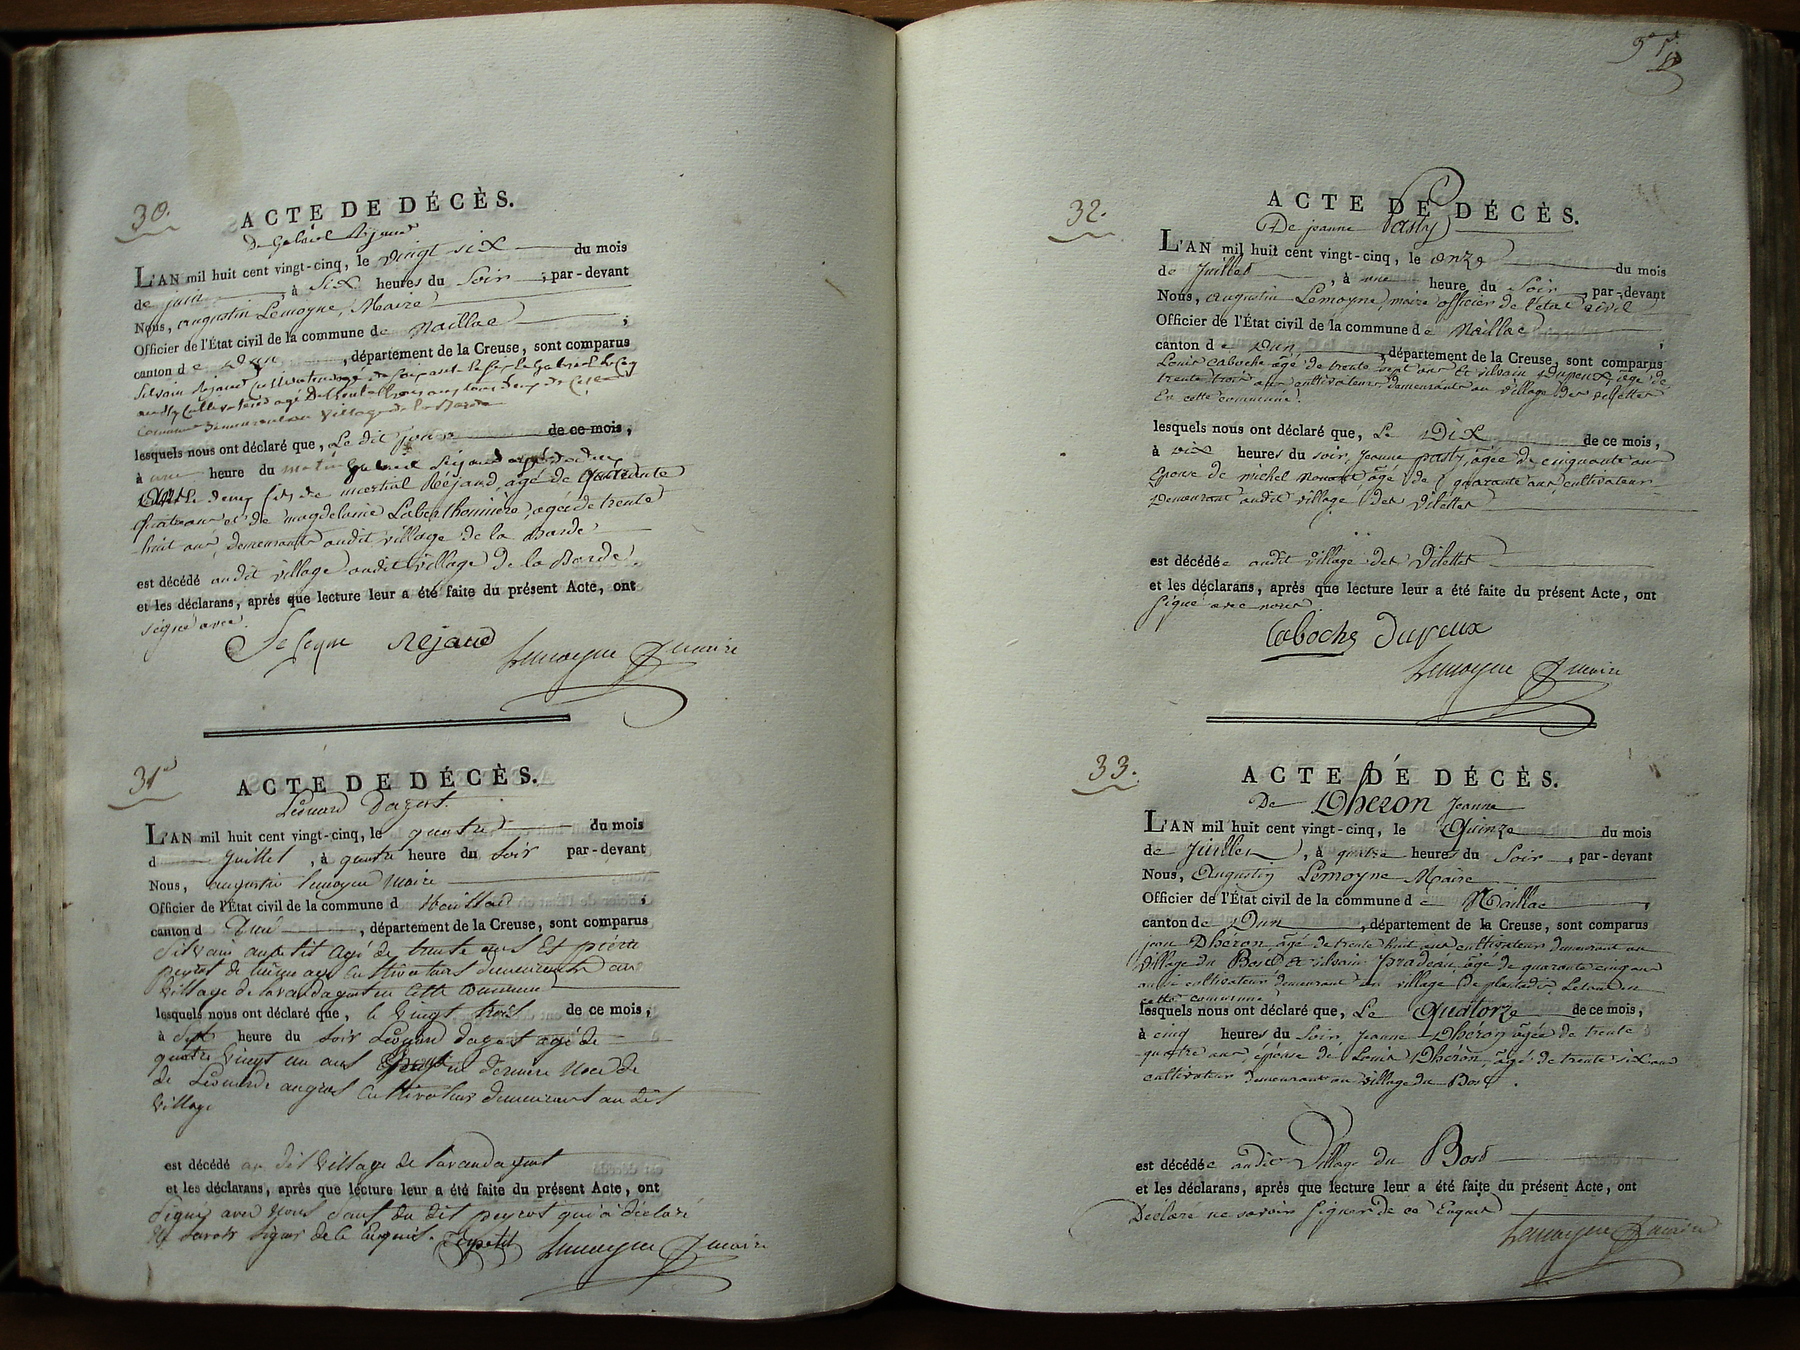 30.
ACTE DE DÉCÈS.
De Gabriel Rejaud
L'AN mil huit cent vingt-cinq, le vingt six du mois
de juin, à Six heures du Soir, par-devant
Nous, augustin Lemoyne, Maire
Officier de l'État civil de la commune de Naillac ;
canton de Dun, département de la Creuse, sont comparus
Silvain Rejaud cultivateur agé de
cultivateur agé de
commune demeurant au village de la Barde
lesquels nous ont déclaré que, Le dit jour de ce mois,
à une heure du matin Gabriel Rejaud agé de
deux fils de martial Réjaud, agé de quarante
quatre ans et de magdelaine Laberthonniere, agée de trente
huit ans, demeurants audit village de la Barde
est décédé audit village audit village de la Barde.
et les déclarans, après que lecture leur a été faite du présent Acte, ont
signé avec
Rejaud Lemoyne maire
31e
ACTE DE DÉCÈS.
Léonard Dagost
L'AN mil huit cent vingt-cinq, le quatre du mois
d Juillet, à quatre heure du Soir par-devant
Nous, augustin lemoyne Maire
Officier de l'État civil de la commune d Naillac ;
canton d Dun, département de la Creuse, sont comparus
Silvain aupetit agé de trente ans Et pierre
peyrot de cultivateurs demeurants au
Village de en cette commune
lesquels nous ont déclaré que, le Vingt trois de ce mois,
à Sept heure du soir Léonard dagost agé de
quatre Vingt un ans Epoux en derniere Noce de
de Léonarde cultivateur demeurant au dit
Village
est décédé au dit Village de
et les déclarans, après que lecture leur a été faite du présent Acte, ont
Signé avec Nous Sauf du dit peyrot qui a déclaré
Ne Savoir Signer de ce Enquis. Lemoyne maire
32.
ACTE DE DÉCÈS.
De jeanne Pasty
L'AN mil huit cent vingt-cinq, le onze du mois
de Juillet, à une heure du Soir, par-devant
Nous, augustin Lemoyne, maire officier de l'état civil
Officier de l'État civil de la commune de Naillac ;
canton de Dun, département de la Creuse, sont comparus
Louis Caboche âgé de trente sept ans Et silvain Dupeux, âgé de
trente trois ans cultivateurs demeurants au village des vilettes
En cette commune.
lesquels nous ont déclaré que, Le Dix de ce mois,
à heures du soir, Jeanne pasty, âgée de cinquante ans
Epouse de michel, âgé de quarante ans, cultivateur
Demeurant audit village des Vilettes
est décédée audit village des Vilettes
et les déclarans, après que lecture leur a été faite du présent Acte, ont
signé avec nous.
Caboche Dupeux
Lemoyne maire
33.
ACTE DE DÉCÈS.
De Dhéron Jeanne
L'AN mil huit cent vingt-cinq, le Quinze du mois
de Juillet, à quatre heures du Soir, par-devant
Nous, Augustin Lemoyne Maire
Officier de l'État civil de la commune de Naillac,
canton de Dun, département de la Creuse, sont comparus
jean Dhéron, âgé de trente huit ans cultivateur demeurant au
village du Bost Et silvain pradeau, âgé de quarante cinq ans
aussi cultivateur demeurant au village de
cette commune
lesquels nous ont déclaré que, Le Quatorze de ce mois,
à cinq heures du Soir, Jeanne Dhéron, âgée de trente
quatre ans épouse de Louis Dhéron, âgé de trente six ans
cultivateur demeurant au village du Bost.
est décédée audit Village du Bost
et les déclarans, après que lecture leur a été faite du présent Acte, ont
Déclaré ne savoir signer de ce Enquis
Lemoyne maire